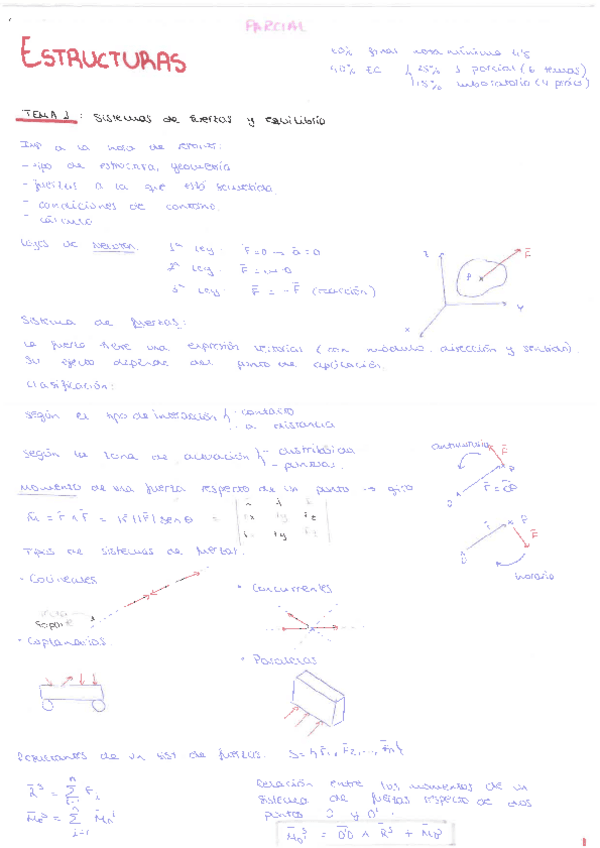 PARCIAL
ESTRUCTURAS
60% final nota mínima 4'5
40% EC { 25% 1 parcial (6 temas)
15% laboratorio (4 prácts)
TEMA 1: Sistemas de fuerzas y equilibrio
a la hora de
- tipo de estructura, geometría
- fuerzas a la que está sometida
- condiciones de contorno
- cálculo
Leyes de Newton: 1ª Ley: F=0 → a=0
2ª Ley:
3ª Ley: F̄ = -F̄ (reacción)
z
P
F̄
y
x
Sistema de fuerzas:
La fuerza tiene una expresión vectorial (con módulo, dirección y sentido).
Su efecto depende del punto de aplicación.
Clasificación:
según el tipo de interacción { - contacto
- a distancia
según la zona de actuación { - distribuida
- puntual.
antihorario
F̄
P
r̄ = OP
O
Momento de una fuerza respecto de un punto → giro
M̄ = r̄ ∧ F̄ = |r̄| |F̄| sen θ =
r̄
P
F̄
O
horario
Tipos de sistemas de fuerzas:
• Colineales
• Concurrentes
• Coplanarias
• Paralelas
Resultantes de un sist de fuerzas: S = {F̄1, F̄2, ..., F̄n}
R̄ˢ = Σ F̄i
M̄oˢ = Σ M̄oⁱ
Relación entre los momentos de un
sistema de fuerzas respecto de dos
puntos O y O'
M̄o'ˢ = O'O ∧ R̄ˢ + M̄oˢ